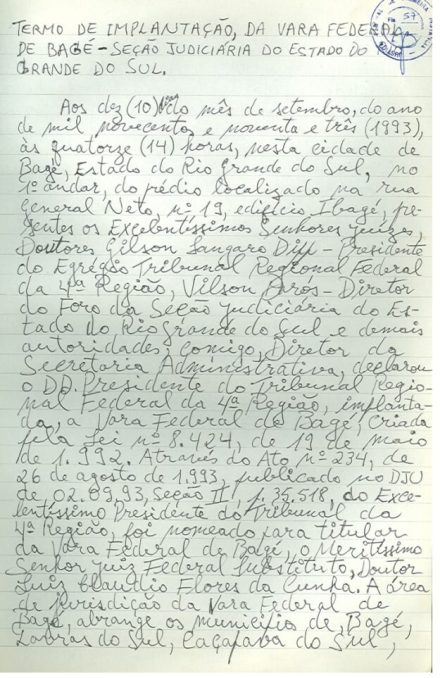 TERMO DE IMPLANTAÇÃO, DA VARA FEDERAL
DE BAGÉ - SEÇÃO JUDICIÁRIA DO ESTADO DO
GRANDE DO SUL.
57
Aos dez (10) do mês de setembro, do ano
de mil novecentos e noventa e três (1993),
às quatorze (14) horas, nesta cidade de
Bagé, Estado do Rio Grande do Sul, no
1º andar, do prédio localizado na rua
General Neto, nº 19, edifício Ibagé, pre-
sentes os Excelentíssimos Senhores Juízes,
Doutores Gilson Langaro Dipp - Presidente
do Egrégio Tribunal Regional Federal
da 4ª Região, Vilson Darós - Diretor
do Foro da Seção Judiciária do Es-
tado do Rio Grande do Sul e demais
autoridades, comigo, Diretor da
Secretaria Administrativa, declarou
o DD. Presidente do Tribunal Regio-
nal Federal da 4ª Região, implanta-
da, a Vara Federal de Bagé, criada
pela Lei nº 8.424, de 19 de maio
de 1.992. Através do Ato nº 234, de
26 de agosto de 1.993, publicado no DJU
de 02.09.93, Seção II, p. 35.518, do Exce-
lentíssimo Presidente do Tribunal da
4ª Região, foi nomeado para titular
da Vara Federal de Bagé, o Meritíssimo
Senhor Juiz Federal Substituto, Doutor
Luiz Claudio Flores da Cunha. A área
de jurisdição da Vara Federal de
Bagé, abrange os município de, Bagé,
Lavras do Sul, Caçapava do Sul,